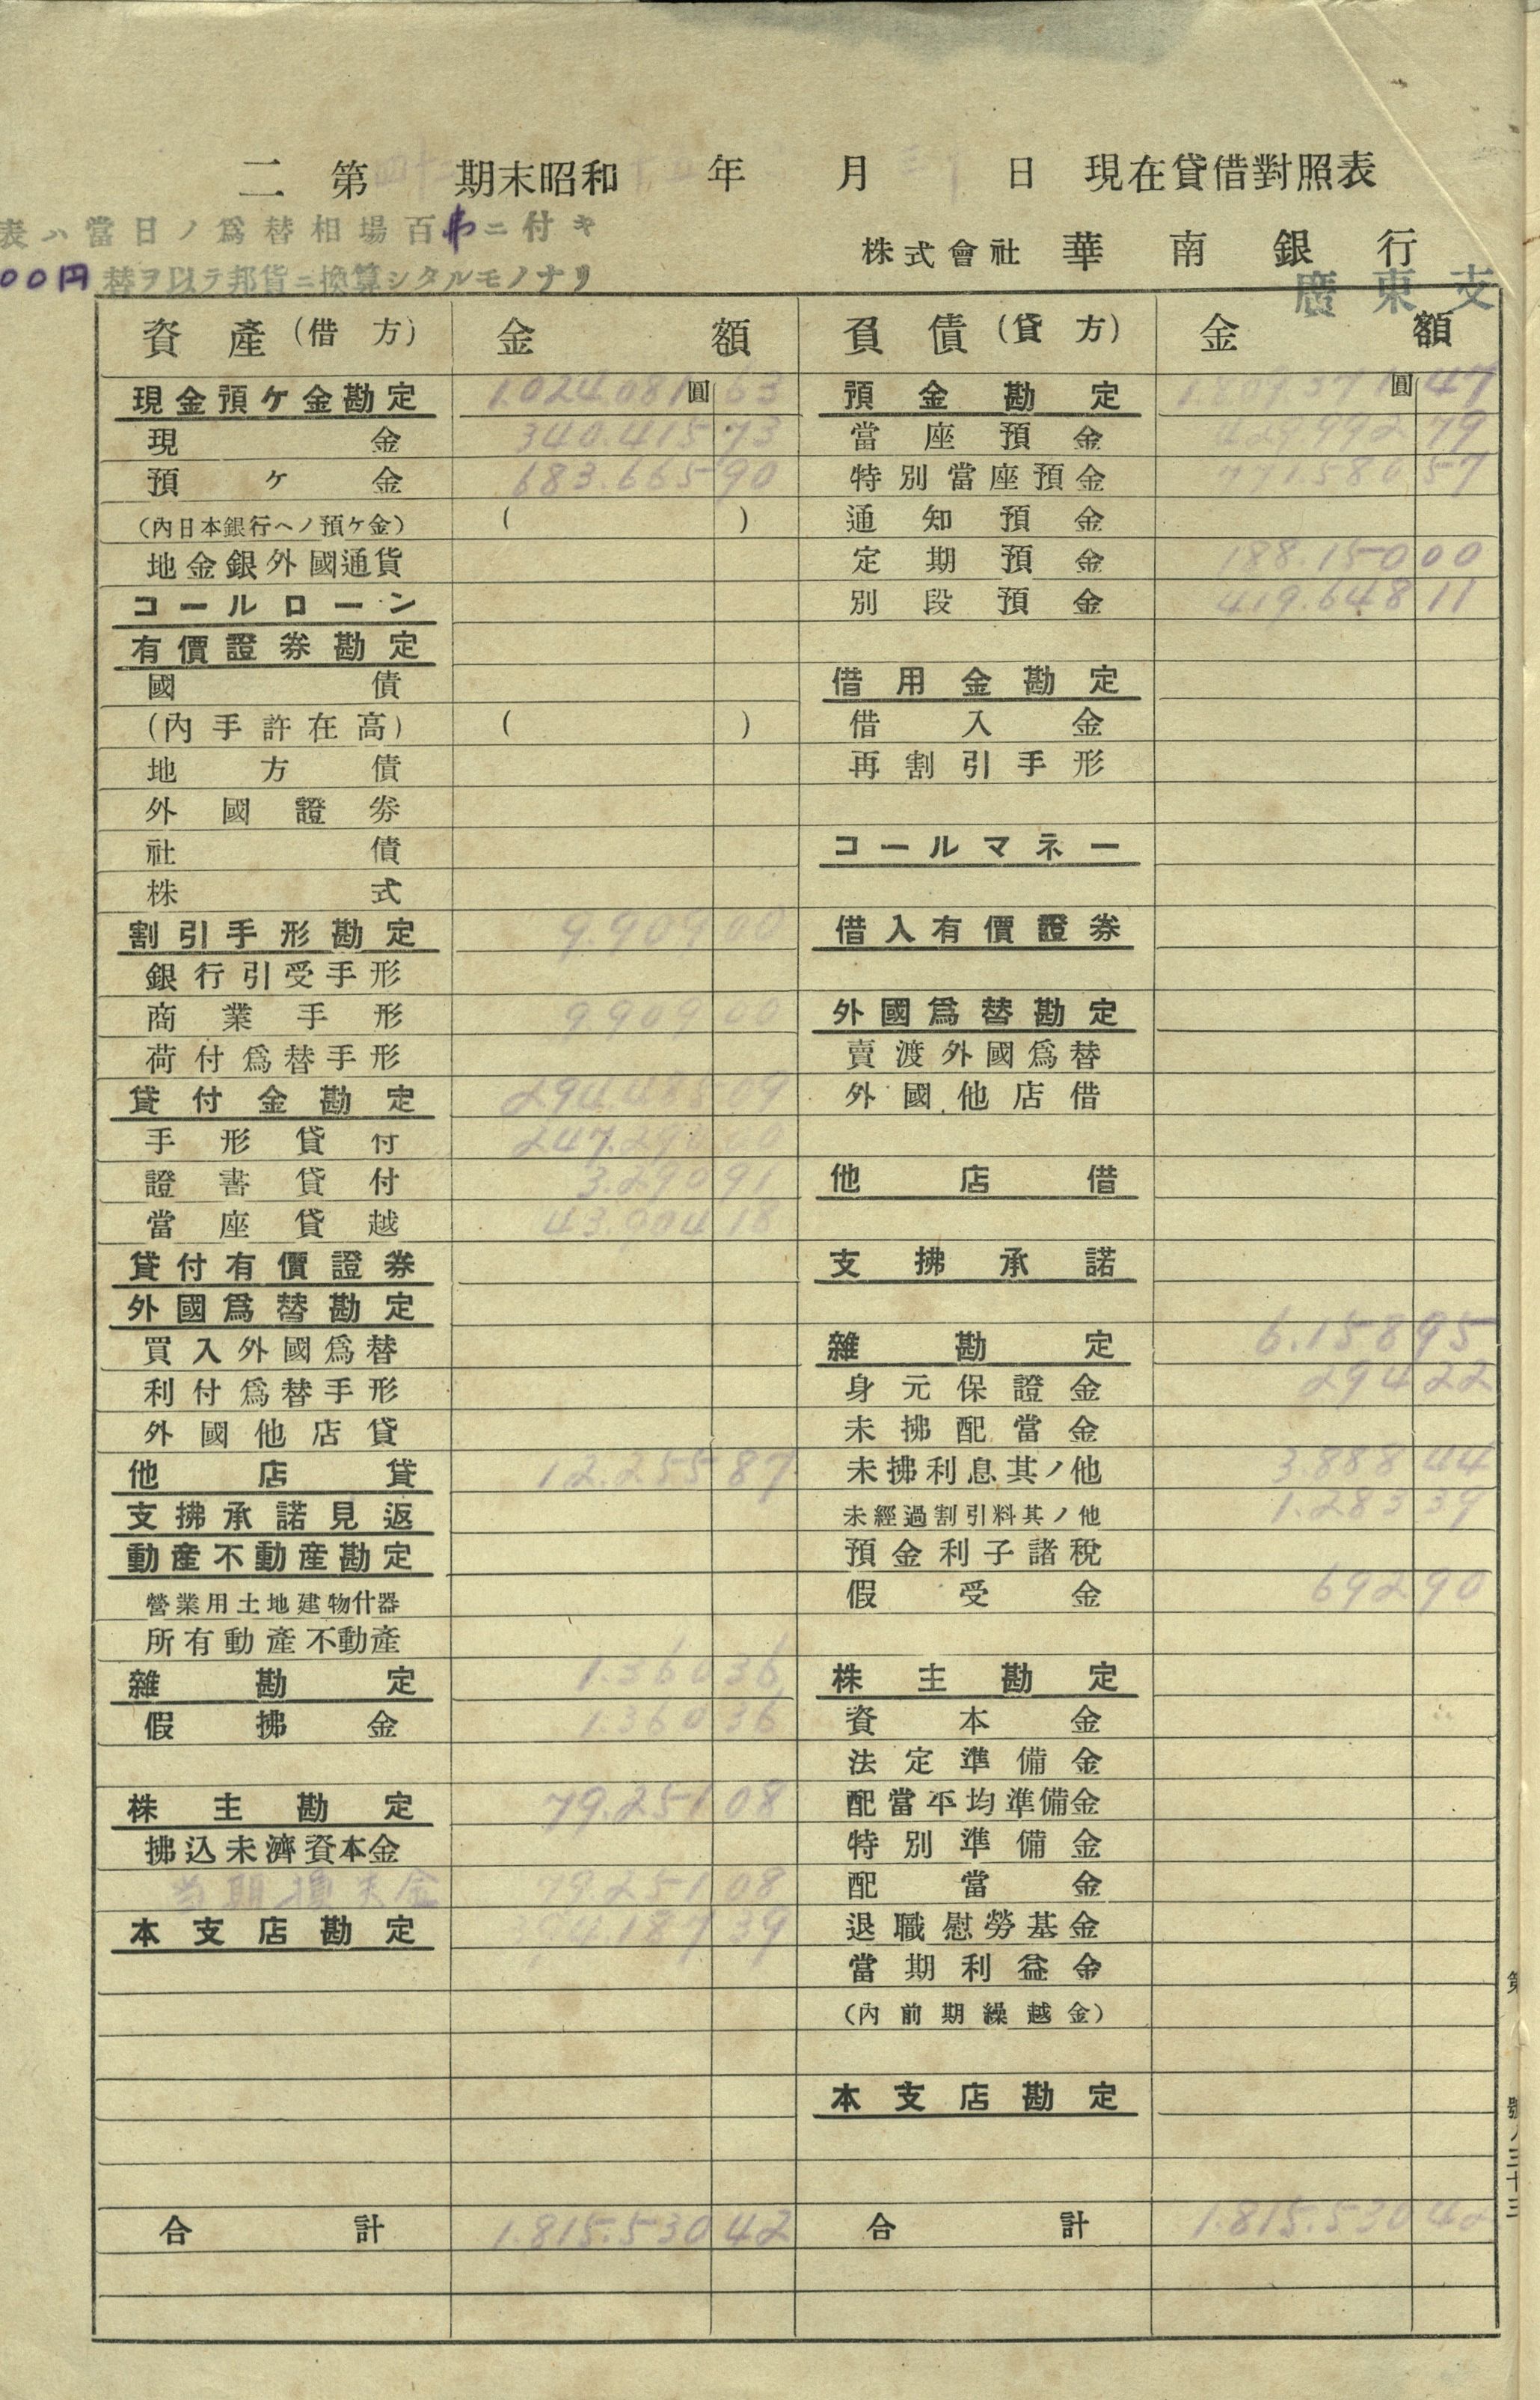 二 第 期末昭和 年 月 日 現在貸借對照表
表ハ當日ノ爲替相場百弗ニ付キ
00円替ヲ以テ邦貨ニ換算シタルモノナリ
株式會社 華南銀行
廣東支
資産(借方) 金額 負債(貸方) 金額
圓 圓
現金預ケ金勘定 1.024.081 63 預金勘定 1.809.371 47
現金 340.415 73 當座預金 429.992 79
預ケ金 683.665 90 特別當座預金 771.580 57
(內日本銀行ヘノ預ケ金) ( ) 通知預金
地金銀外國通貨 定期預金 188.150 00
コールローン 別段預金 419.648 11
有價證券勘定
國債 借用金勘定
(內手許在高) ( ) 借入金
地方債 再割引手形
外國證劵
社債 コールマネー
株式
割引手形勘定 9.909 00 借入有價證券
銀行引受手形
商業手形 9.909 00 外國爲替勘定
荷付爲替手形 賣渡外國爲替
貸付金勘定 294.485 09 外國他店借
手形貸付 247.290 00
證書貸付 3.290 91 他店借
當座貸越 43.904 18
貸付有價證券 支拂承諾
外國爲替勘定
買入外國爲替 雜勘定 6.158 95
利付爲替手形 身元保證金 294 22
外國他店貸 未拂配當金
他店貸 12.255 87 未拂利息其ノ他 3.888 44
支拂承諾見返 未經過割引料其ノ他 1.283 39
動産不動産勘定 預金利子諸稅
營業用土地建物什器 假受金 692 90
所有動產不動產
雜勘定 1.360 36 株主勘定
假拂金 1.360 36 資本金
法定準備金
株主勘定 79.251 08 配當平均準備金
拂込未濟資本金 特別準備金
当期損失金 79.251 08 配當金
本支店勘定 394.187 39 退職慰勞基金
當期利益金
(內前期繰越金)
本支店勘定
合計 1.815.530 42 合計 1.815.530 42
第
號ノ三十三